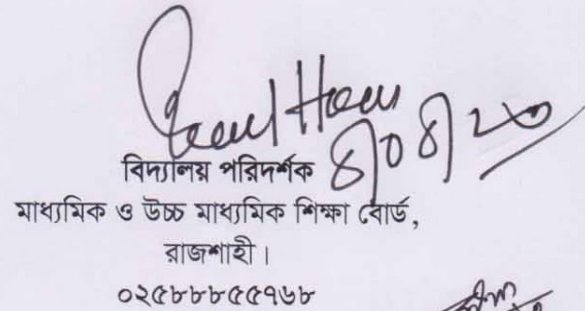 ৪/০৪/২৩
বিদ্যালয় পরিদর্শক
মাধ্যমিক ও উচ্চ মাধ্যমিক শিক্ষা বোর্ড,
রাজশাহী।
০২৫৮৮৮৫৫৭৬৮